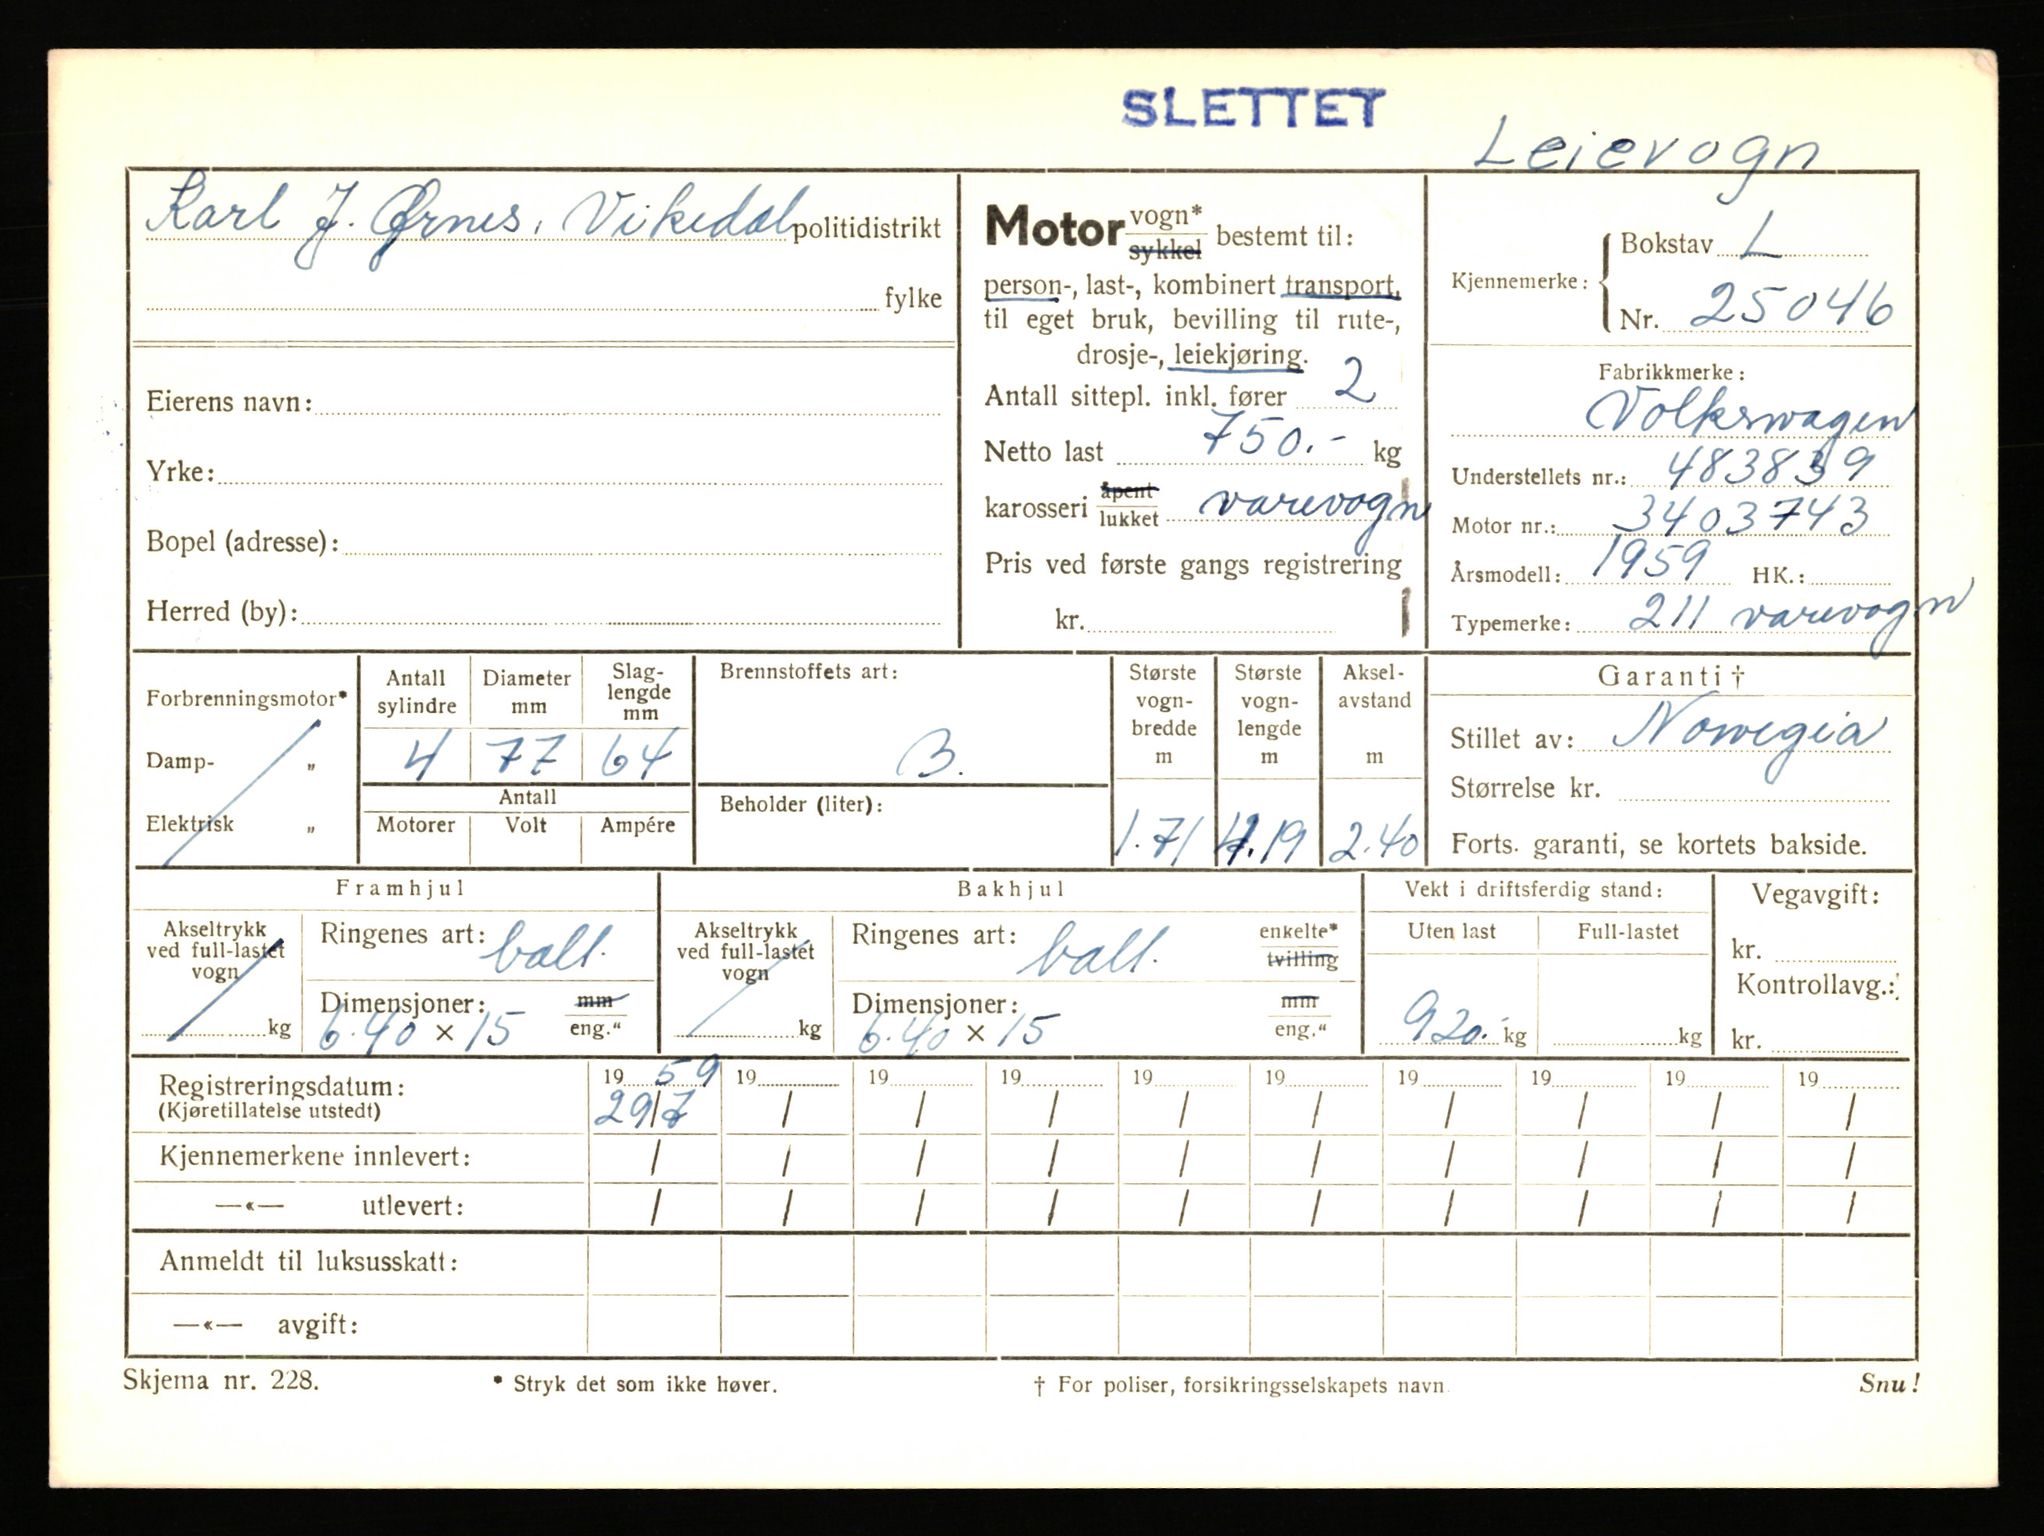 SLETTET
Leievogn
Karl J. Ørnes, Vikedal politidistrikt
fylke
Eierens navn:
Yrke:
Bopel (adresse):
Herred (by):
Motor vogn* sykkel bestemt til:
person-, last-, kombinert transport,
til eget bruk, bevilling til rute-,
drosje-, leiekjøring.
Antall sittepl. inkl. fører 2
Netto last 750.- kg
karosseri åpent lukket varevogn
Pris ved første gangs registrering
kr.
Kjennemerke: Bokstav L
Nr. 25046
Fabrikkmerke:
Volkswagen
Understellets nr.: 483839
Motor nr.: 3403743
Årsmodell: 1959 HK.:
Typemerke: 211 varevogn
Forbrenningsmotor*
Damp- „
Elektrisk „
Antall sylindre Diameter mm Slag-lengde mm
4 77 64
Antall
Motorer Volt Ampére
Brennstoffets art:
B.
Beholder (liter):
Største vogn-bredde m Største vogn-lengde m Aksel-avstand m
1.71 4.19 2.40
Garanti †
Stillet av: Norwegia
Størrelse kr.
Forts. garanti, se kortets bakside.
Framhjul
Akseltrykk ved full-lastet vogn kg
Ringenes art: ball.
Dimensjoner: mm
6.40 × 15 eng."
Bakhjul
Akseltrykk ved full-lastet vogn kg
Ringenes art: ball. enkelte* tvilling
Dimensjoner: mm
6.40 × 15 eng."
Vekt i driftsferdig stand:
Uten last Full-lastet
920.- kg kg
Vegavgift:
kr.
Kontrollavg.:
kr.
Registreringsdatum: 19 59 19 19 19 19 19 19 19 19 19
(Kjøretillatelse utstedt) 29/7 / / / / / / / / /
Kjennemerkene innlevert: / / / / / / / / / /
—«— utlevert: / / / / / / / / / /
Anmeldt til luksusskatt:
—«— avgift:
Skjema nr. 228. * Stryk det som ikke høver. † For poliser, forsikringsselskapets navn Snu!